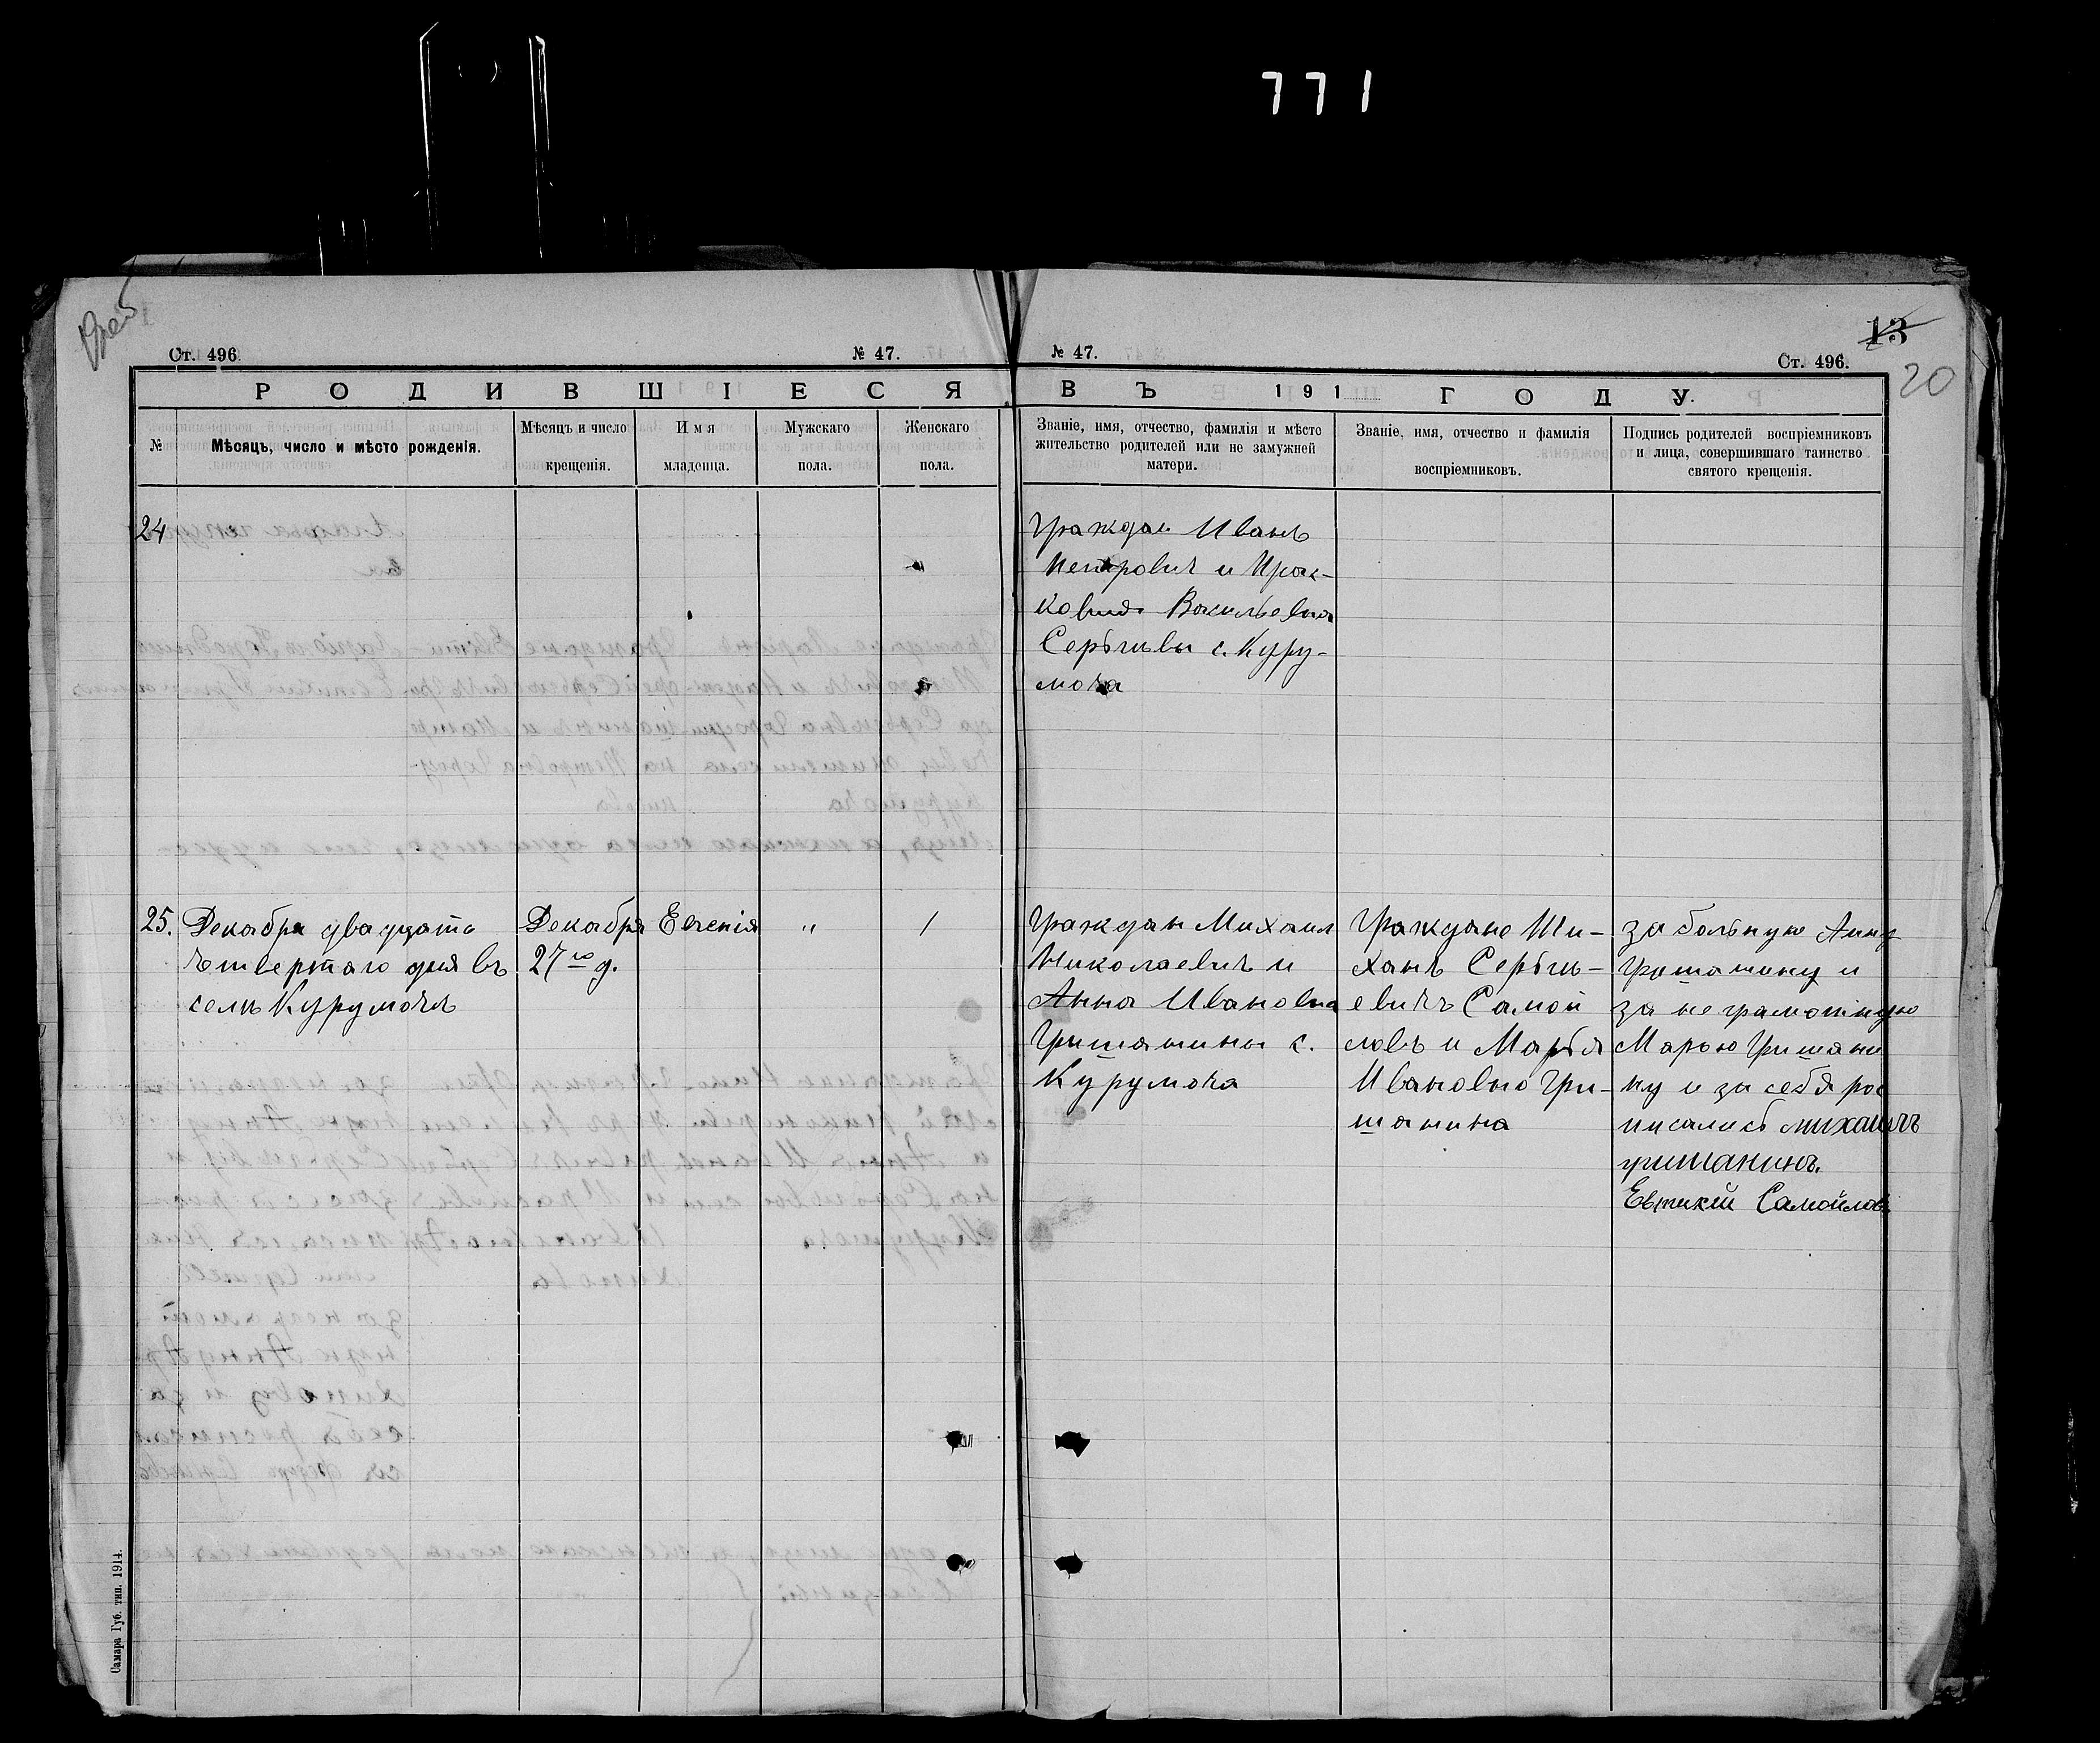 771
Ст. 496.
№ 47.
№ 47.
13
Ст. 496.
20
РОДИВШІЕСЯ
ВЪ 191 ГОДУ.
№
Мѣсяцъ, число и мѣсто рожденія.
Мѣсяцъ и число крещенія.
Имя младенца.
Мужскаго пола.
Женскаго пола.
Званіе, имя, отчество, фамилія и мѣсто
жительство родителей или не замужней
матери.
Званіе, имя, отчество и фамилія
воспріемниковъ.
Подпись родителей воспріемниковъ
и лица, совершившаго таинство
святого крещенія.
24
Граждан Иванъ
Петрович и Прас-
ковия Васильевна
Сергѣевы с. Куру-
моча
25.
Декабря двадцать
четвертаго дня въ
селѣ Курумочѣ
Декабря
27го д.
Евгенія
"
1
Граждан Михаил
Николаевич и
Анна Ивановна
Гришанины с.
Курумоча
Граждане Ти-
ханъ Сергѣ-
евичъ Самой
ловъ и Марья
Ивановно Гри-
шанина
за больную Анну
Гришанину и
за не грамотную
Марью Гришани
ну и за себя рос
писались михаилъ
гришанинъ.
Евтихій Самойловъ
Самара Губ. тип. 1914.